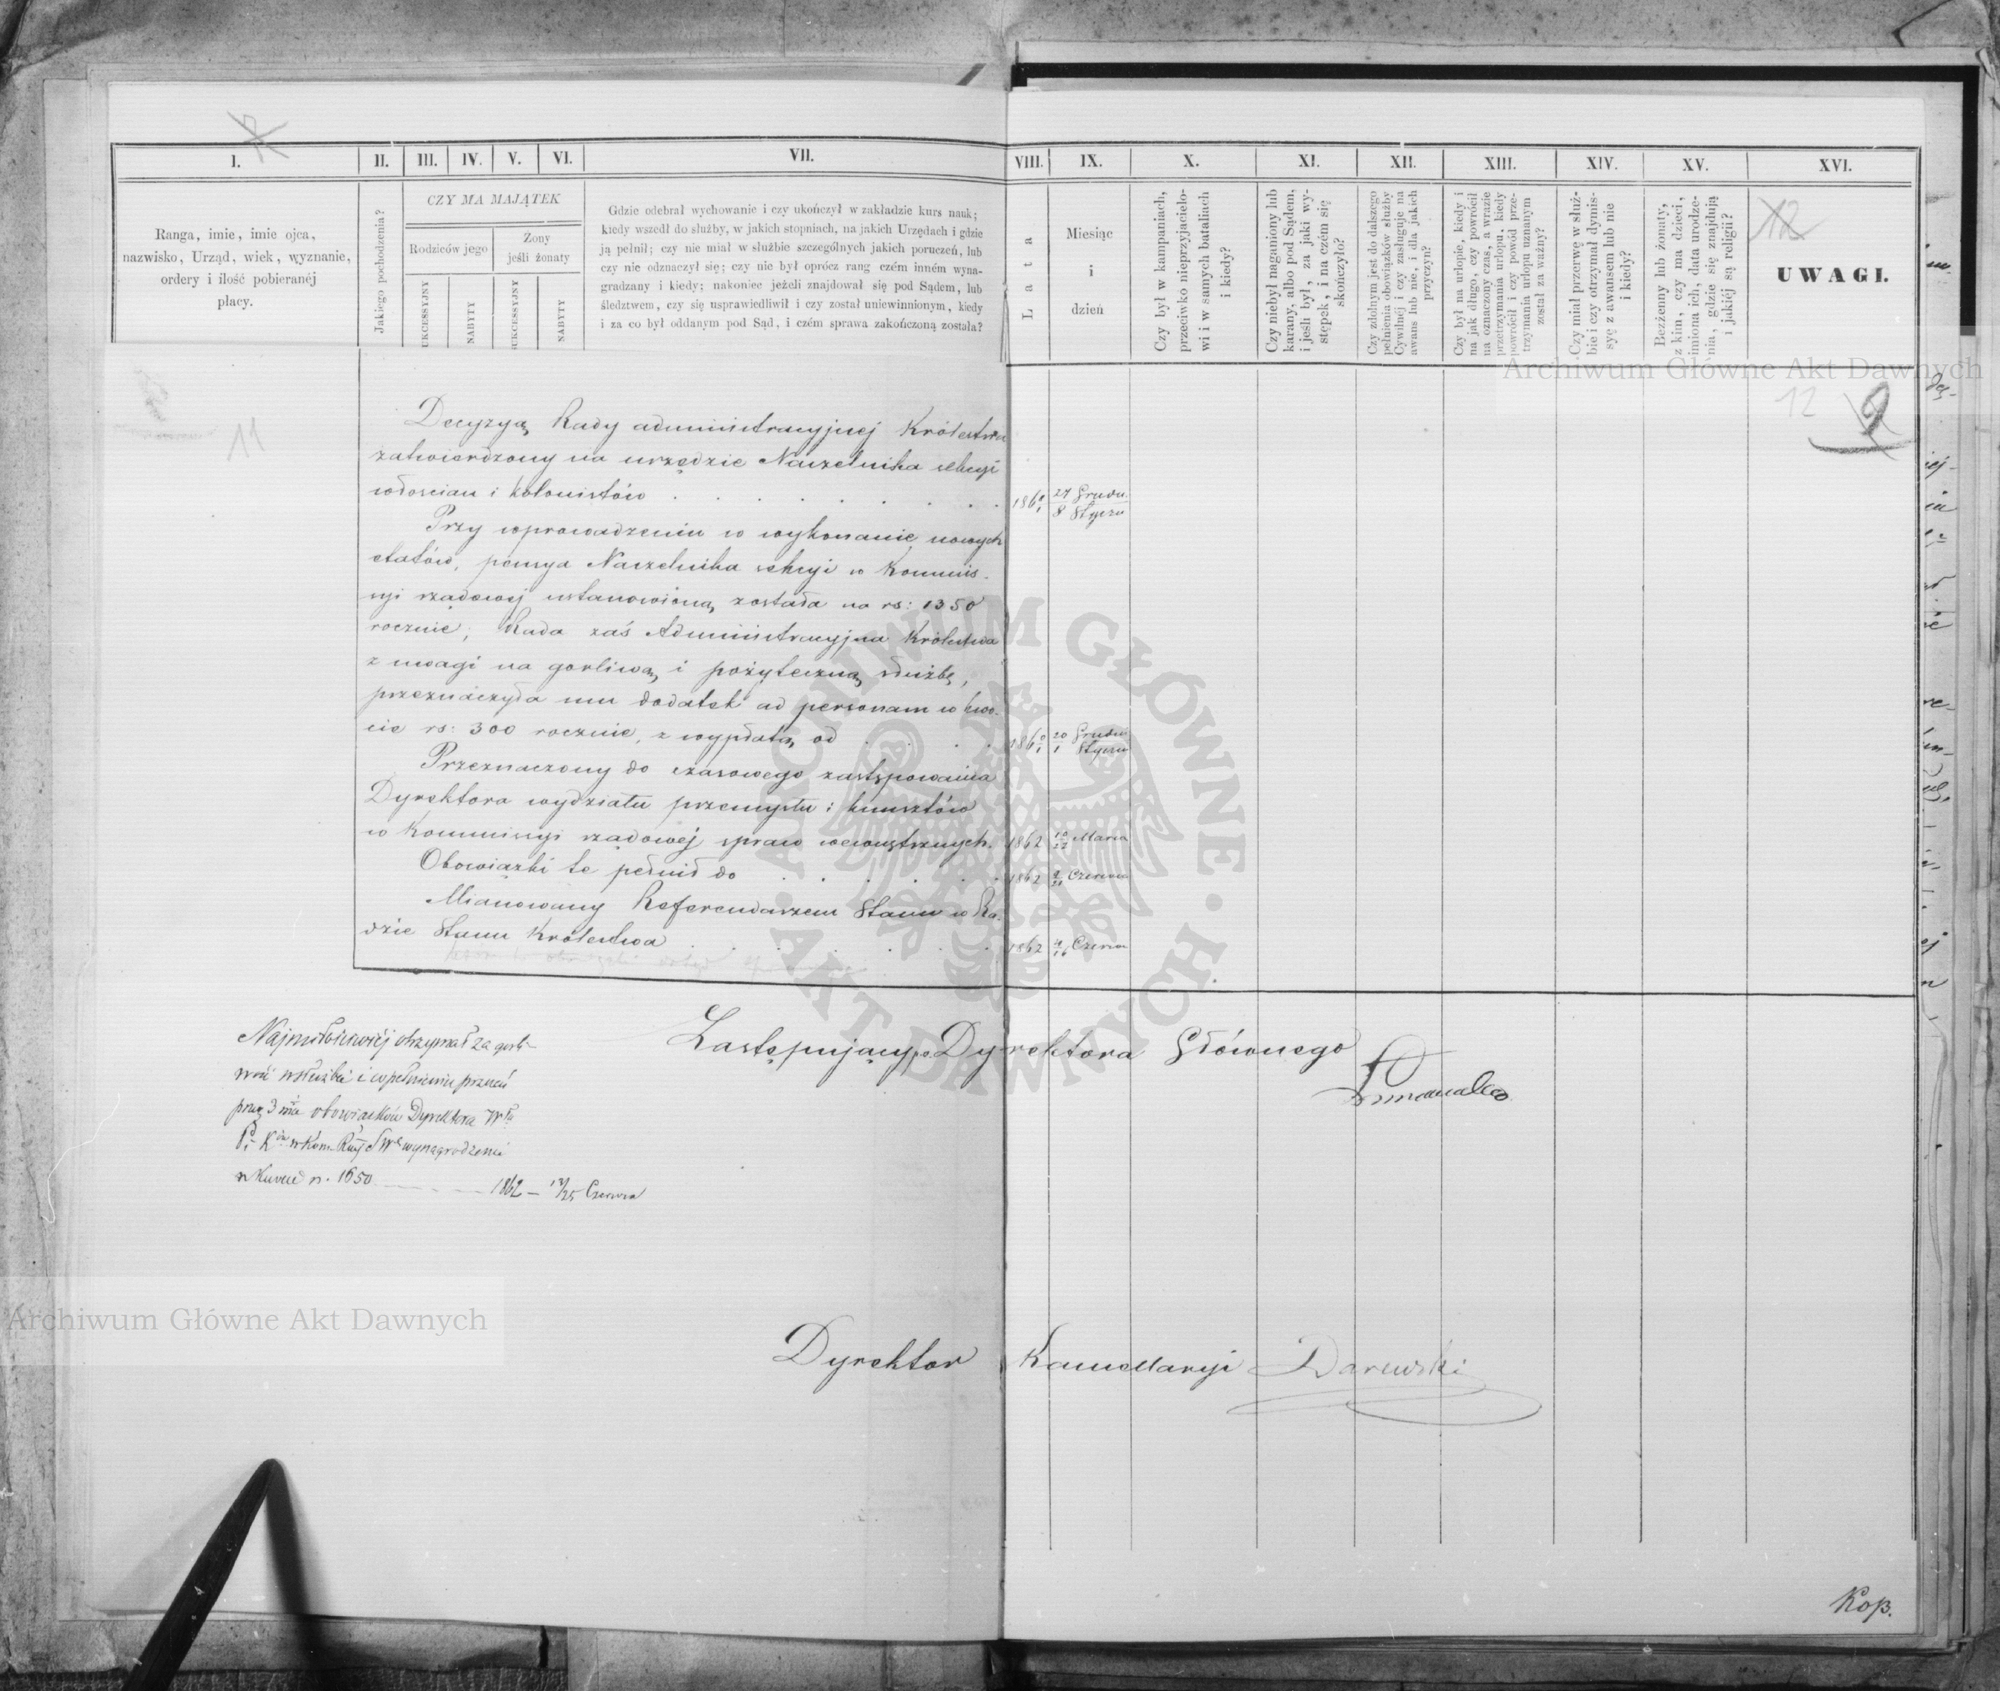 I.
II.
III.
IV.
V.
VI.
VII.
VIII.
IX.
X.
XI.
XII.
XIII.
XIV.
XV.
XVI.
Ranga, imie, imie ojca,
nazwisko, Urząd, wiek, wyznanie,
ordery i ilość pobieranéj
płacy.
Jakiego pochodzenia?
CZY MA MAJĄTEK
Rodziców jego
Żony
jeśli żonaty
UKCESSYJNY
NABYTY
UKCESSYJNY
NABYTY
Gdzie odebrał wychowanie i czy ukończył w zakładzie kurs nauk;
kiedy wszedł do służby, w jakich stopniach, na jakich Urzędach i gdzie
ją pełnił; czy nie miał w służbie szczególnych jakich poruczeń, lub
czy nie odznaczył się; czy nie był oprócz rang czém inném wyna-
gradzany i kiedy; nakoniec jeżeli znajdował się pod Sądem, lub
śledztwem, czy się usprawiedliwił i czy został uniewinnionym, kiedy
i za co był oddanym pod Sąd, i czém sprawa zakończoną została?
Lata
Miesiąc
i
dzień
Czy był w kampaniach,
przeciwko nieprzyjacielo-
wi i w samych bataliach
i kiedy?
Czy niebył naganiony lub
karany, albo pod Sądem,
i jeśli był, za jaki wy-
stępek, i na czém się
skończyło?
Czy zdolnym jest do dalszego
pełnienia obowiązków służby
Cywilnéj i czy zasługuje na
awans lub nie, i dla jakich
przyczyn?
Czy był na urlopie, kiedy i
na jak długo, czy powrócił
na oznaczony czas, a wrazie
przetrzymania urlopu, kiedy
powrócił i czy powód prze-
trzymania urlopu uznanym
został za ważny?
Czy miał przerwę w służ-
bie i czy otrzymał dymis-
syę z awansem lub nie
i kiedy?
Bezżenny lub żonaty,
z kim, czy ma dzieci,
imiona ich, data urodze-
nia, gdzie się znajdują
i jakiéj są religii?
12
UWAGI.
11
12
9
Decyzyą Rady administracyjnej Królestwa
zatwierdzony na urzędzie Naczelnika sekcyi
włościan i kolonistów . . . . . . . 186 0/1 27 Grudn. / 8 Stycznia
Przy wprowadzeniu w wykonanie nowych
etatów, pensya Naczelnika sekcyi w Kommis-
syi rządowej ustanowioną została na rs: 1350
rocznie; Rada zaś Administracyjna Królestwa
z uwagi na gorliwą i pożyteczną służbę,
przeznaczyła mu dodatek ad personam w kwo-
cie rs: 300 rocznie, z wypłatą od . . . . 186 0/1 20 Grudn / 1 Styczn
Przeznaczony do czasowego zastępowania
Dyrektora wydziału przemysłu i kunsztów
w Kommissyi rządowej spraw wewnętrznych. 1862 10/22 Marca
Obowiązki te pełnił do . . . . . . 1862 9/21 Czerwca
Mianowany Referendarzem Stanu w Ra-
dzie Stanu Królestwa . . . . . . . 1862 4/16 Czerwca
Zastępujący Dyrektora Głównego
Najmiłościwiéj otrzymał za gorli-
wość w służbie i w pełnieniu
przez 3 obowiązków Dyrektora
wynagrodzenie
1650 1862 – 13/25 Czerwca
Dyrektor Kancellaryi Darewski
Archiwum Główne Akt Dawnych
Archiwum Główne Akt Dawnych
ARCHIWUM GŁÓWNE AKT DAWNYCH
Kop.